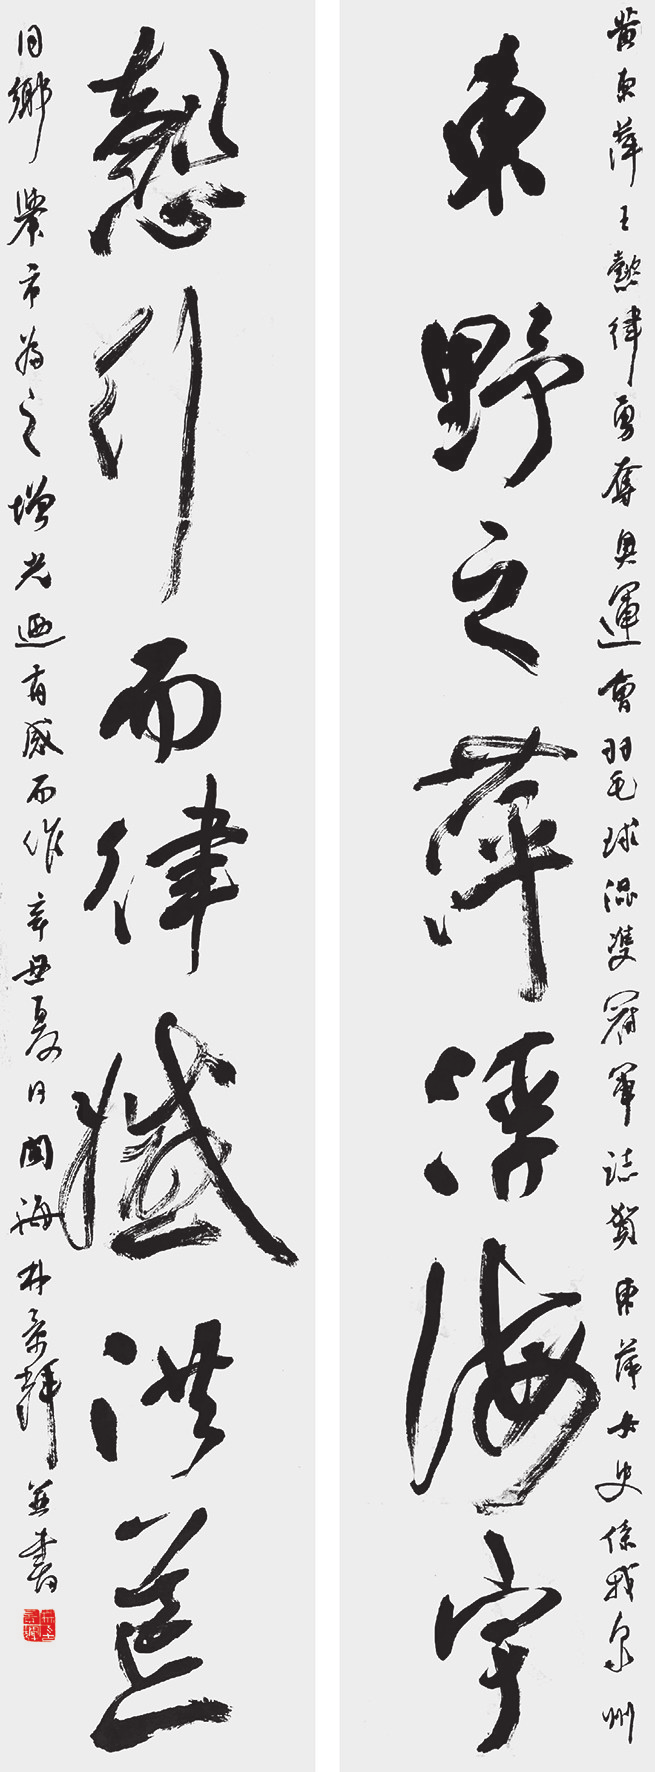 黄東萍王懿律勇奪奥運會羽毛球混雙冠軍誌賀東萍女史係我泉州
東野之萍浮海宇
懿行而律洪
同鄉舉市為之增光迺有感而作辛丑夏日閩海林景輝並書